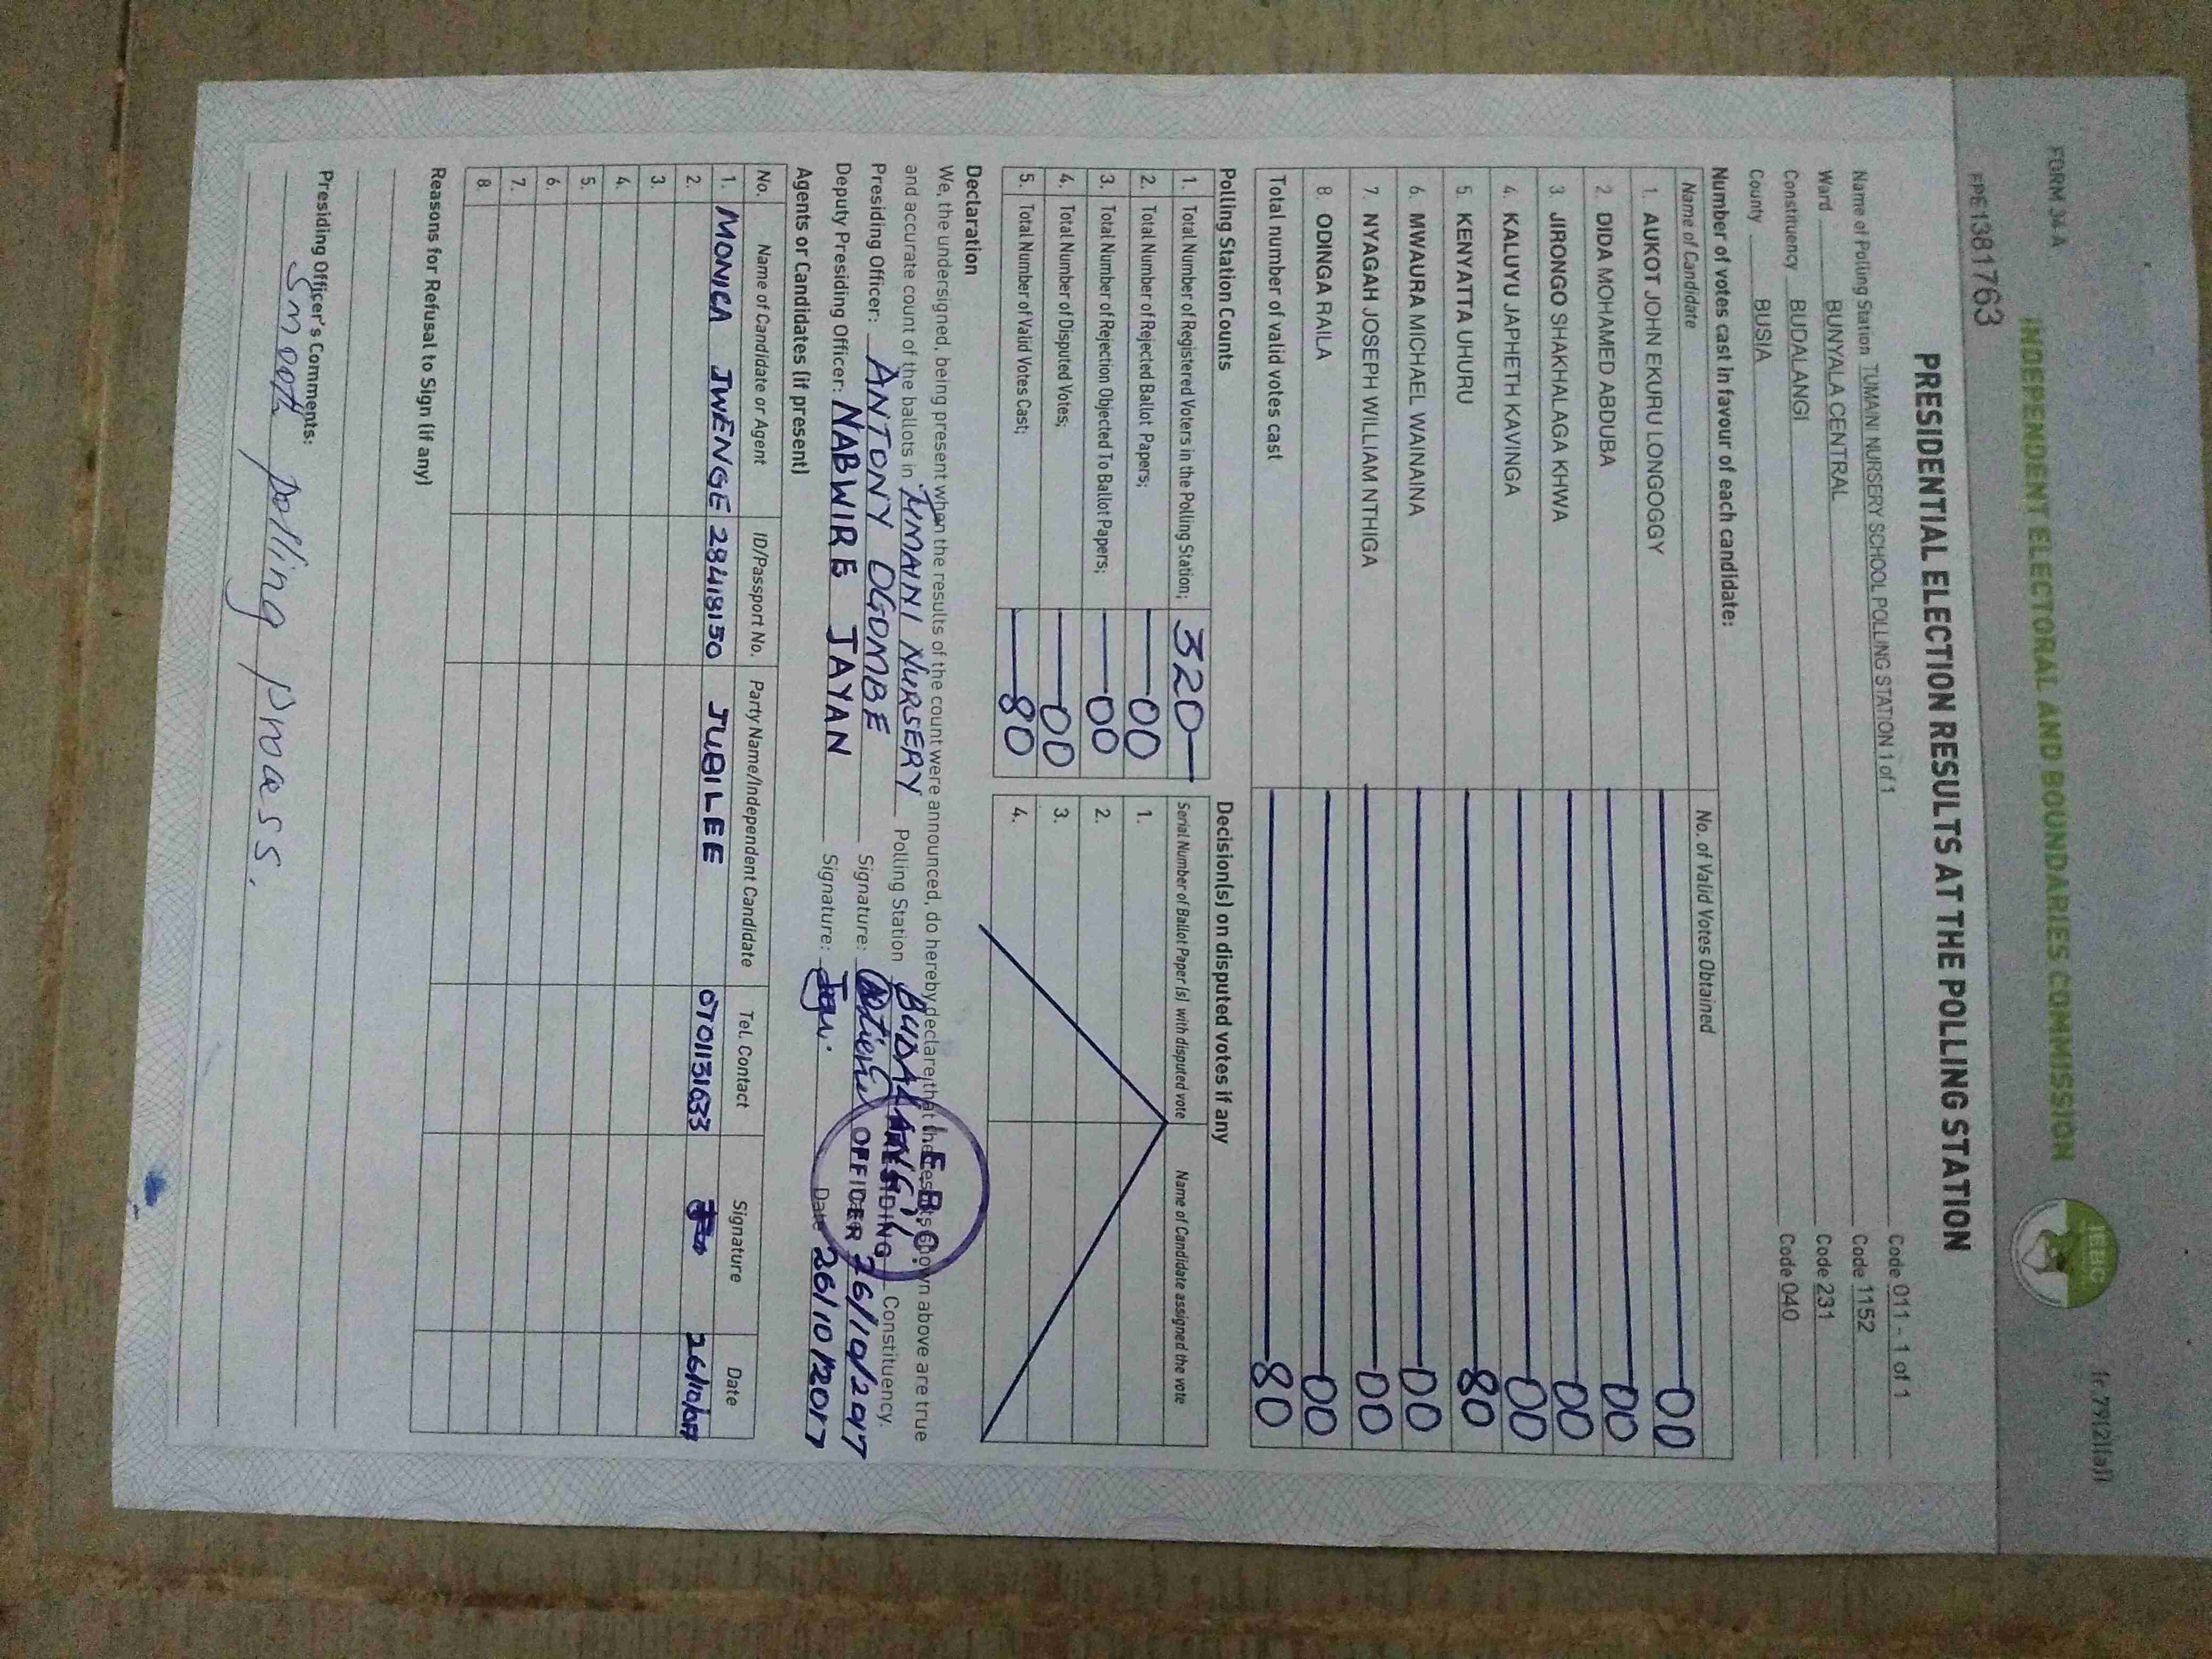 FORM 34 A
fr.79(2)(a))
INDEPENDENT ELECTORAL AND BOUNDARIES COMMISSION
IEBC
FPE1381763
PRESIDENTIAL ELECTION RESULTS AT THE POLLING STATION
Name of Polling Station TUMAINI NURSERY SCHOOL POLLING STATION 1 of 1 Code 011 - 1 of 1
Ward BUNYALA CENTRAL Code 1152
Constituency BUDALANGI Code 231
County BUSIA Code 040
Number of votes cast in favour of each candidate:
Name of Candidate No. of Valid Votes Obtained
1. AUKOT JOHN EKURU LONGOGGY 00
2. DIDA MOHAMED ABDUBA 00
3. JIRONGO SHAKHALAGA KHWA 00
4. KALUYU JAPHETH KAVINGA 00
5. KENYATTA UHURU 80
6. MWAURA MICHAEL WAINAINA 00
7. NYAGAH JOSEPH WILLIAM NTHIGA 00
8. ODINGA RAILA 00
Total number of valid votes cast 80
Polling Station Counts
1. Total Number of Registered Voters in the Polling Station; 320
2. Total Number of Rejected Ballot Papers; 00
3. Total Number of Rejection Objected To Ballot Papers; 00
4. Total Number of Disputed Votes; 00
5. Total Number of Valid Votes Cast; 80
Decision(s) on disputed votes if any
Serial Number of Ballot Paper (s) with disputed vote Name of Candidate assigned the vote
1.
2.
3.
4.
Declaration
We, the undersigned, being present when the results of the count were announced, do hereby declare that the results shown above are true
and accurate count of the ballots in TUMAINI NURSERY Polling Station BUDALANGI Constituency.
Presiding Officer: ANTONY OGOMBE Signature: 26/10/2017
Deputy Presiding Officer: NABWIRE JAYAN Signature: Date 26/10/2017
I.E.B.C.
PRESIDING
OFFICER
Agents or Candidates (if present)
No. Name of Candidate or Agent ID/Passport No. Party Name/Independent Candidate Tel. Contact Signature Date
1. MONICA JWENGE 28418150 JUBILEE 0701131633 26/10/2017
2.
3.
4.
5.
6.
7.
8.
Reasons for Refusal to Sign (if any)
Presiding Officer's Comments:
Smooth polling process.